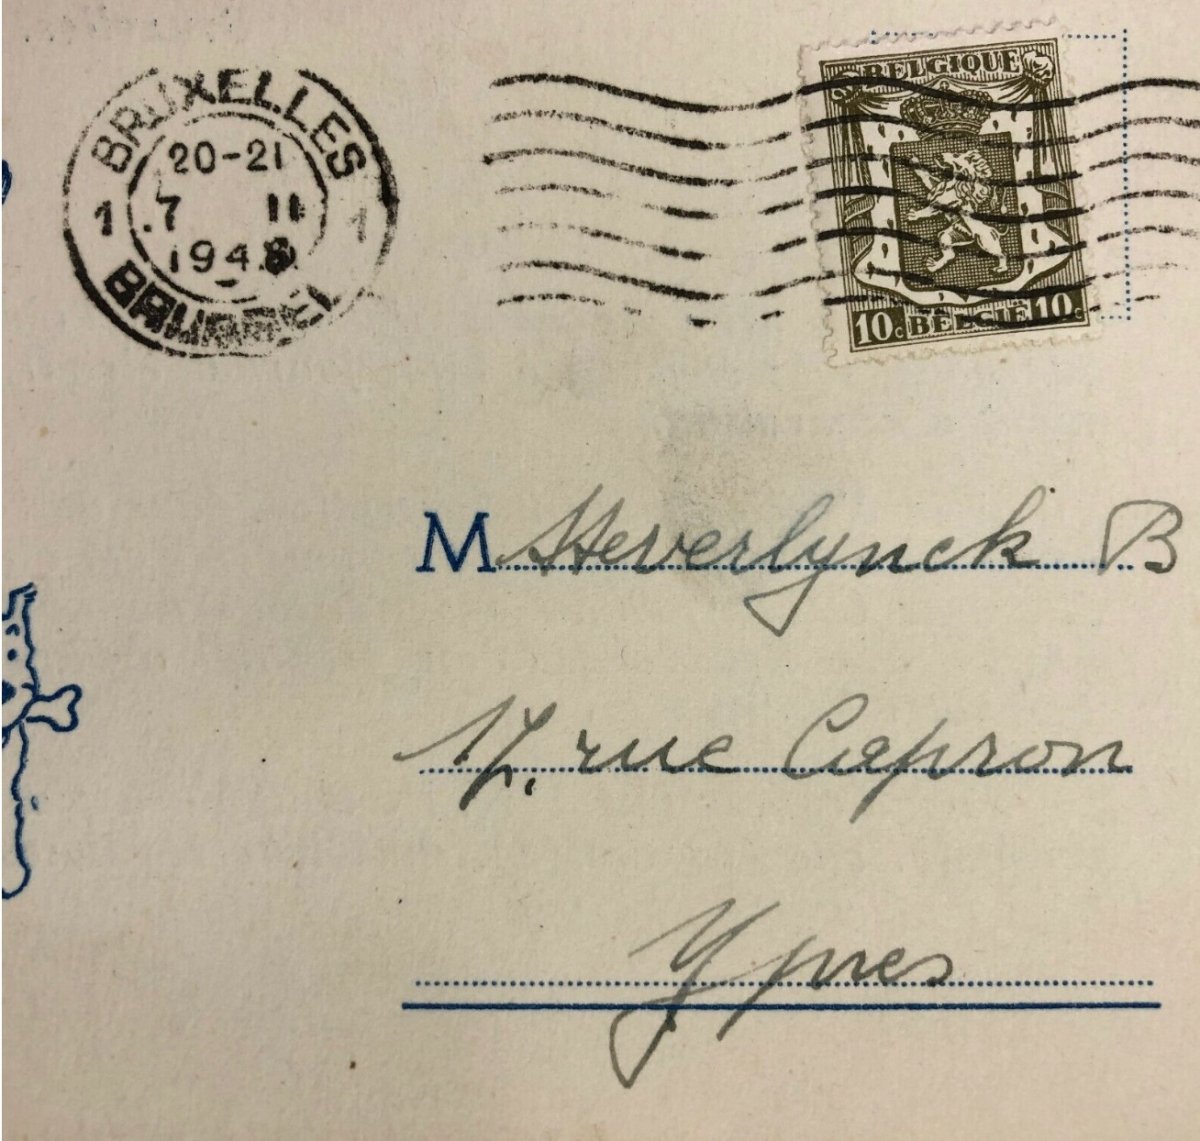 BRUXELLES
20-21
1 7 11 1
BRUSSEL
BELGIQUE
10c BELGIË 10c
M Heverlynck B
17, rue Capron
Ypres